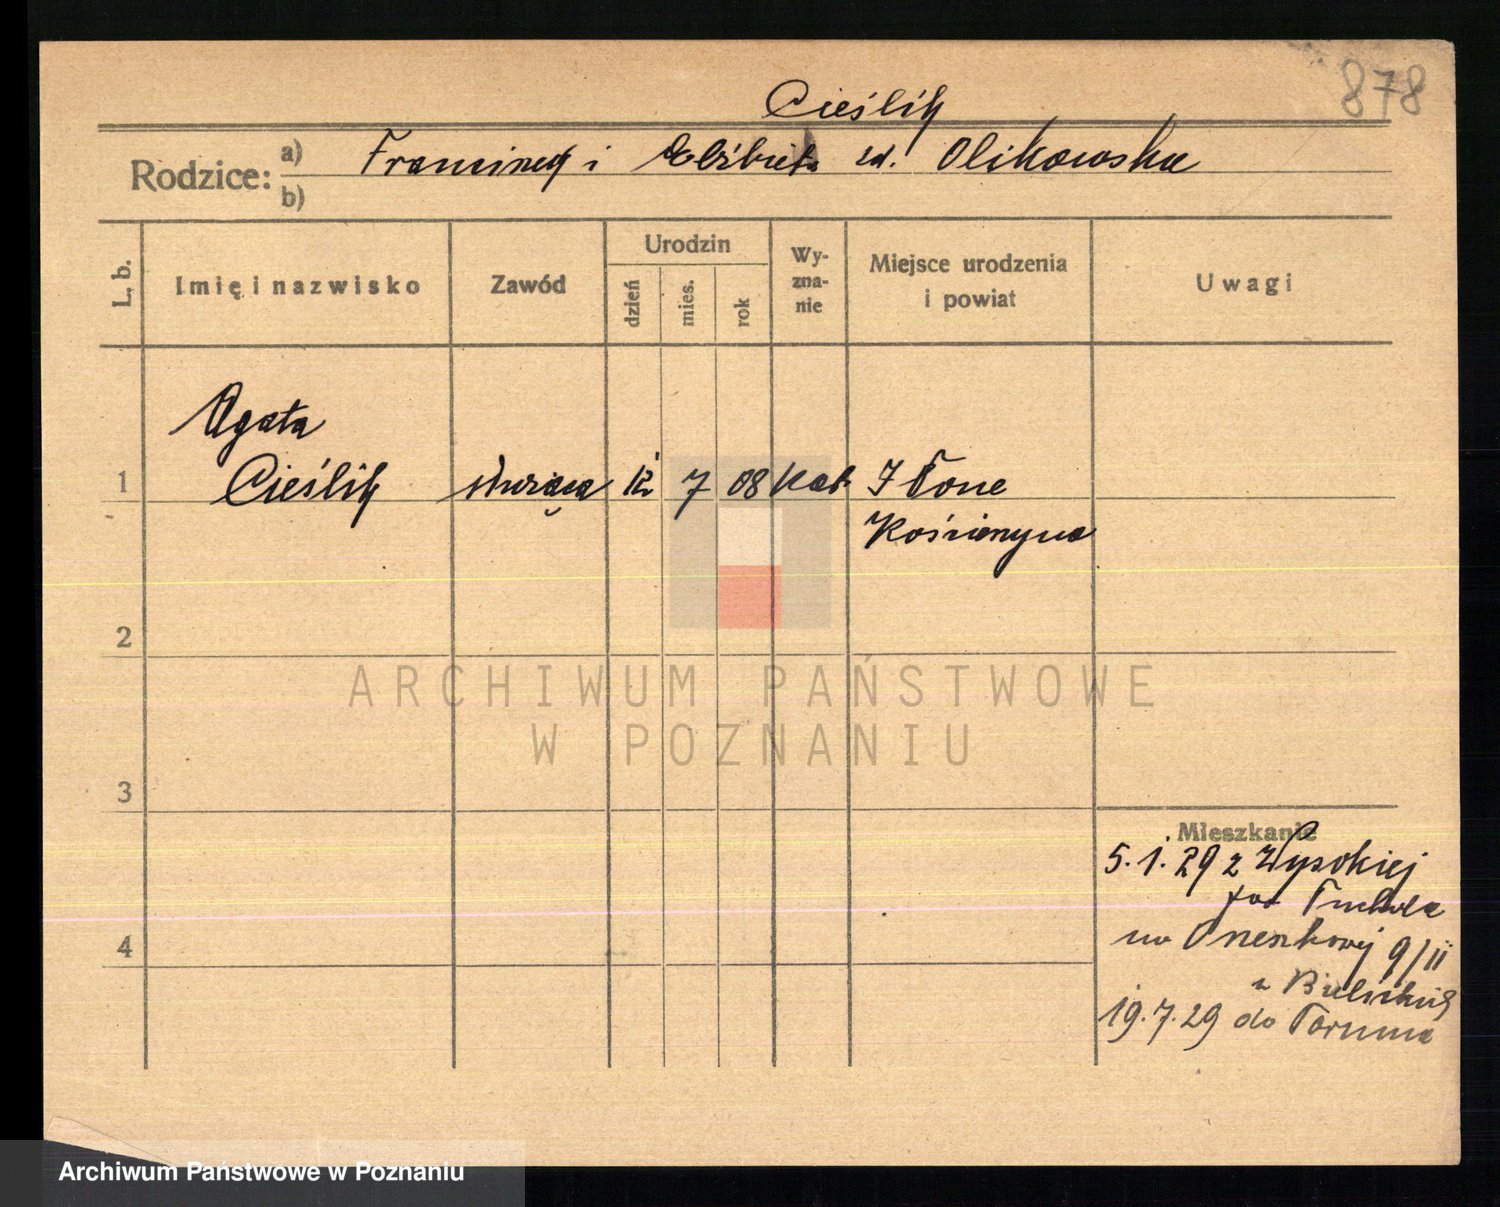 878
Cieślik
Rodzice: a) Franciszek i Elżbieta zd. Olikowska
b)
L. b.
Imię i nazwisko
Zawód
Urodzin
dzień
mies.
rok
Wy-
zna-
nie
Miejsce urodzenia
i powiat
Uwagi
Agata
1 Cieślik służąca 12 7 08 kat.
Kościerzyna
2
3
4
Mieszkanie
5.1.29 z Wysokiej
Tuchola
9/II
19.7.29 do Torunia
ARCHIWUM PAŃSTWOWE
W POZNANIU
Archiwum Państwowe w Poznaniu